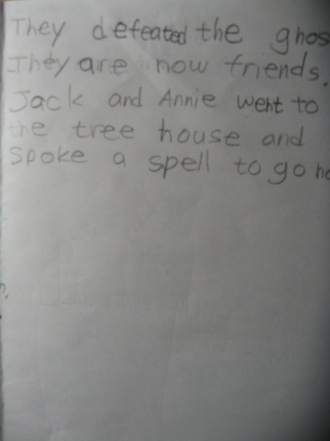 They defeated the ghos
They are now friends.
Jack and Annie went to
the tree house and
Spoke a spell to go ho